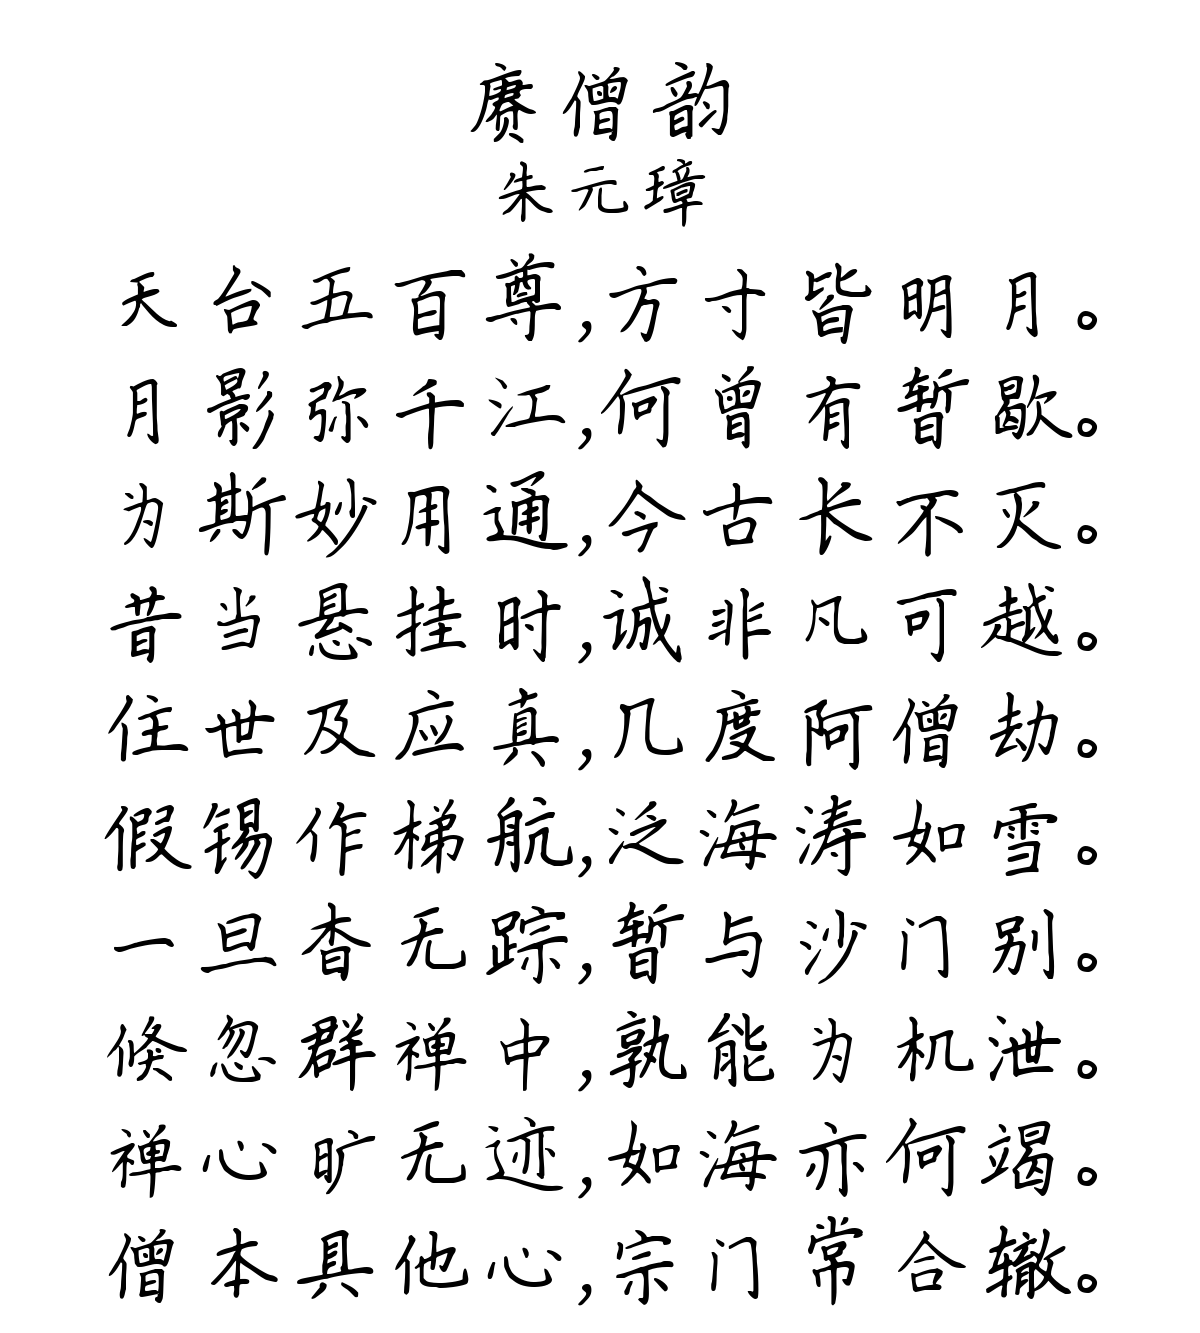 赓僧韵
朱元璋
天台五百尊,方寸皆明月。
月影弥千江,何曾有暂歇。
为斯妙用通,今古长不灭。
昔当悬挂时,诚非凡可越。
住世及应真,几度阿僧劫。
假锡作梯航,泛海涛如雪。
一旦杳无踪,暂与沙门别。
倏忽群禅中,孰能为机泄。
禅心旷无迹,如海亦何竭。
僧本具他心,宗门常合辙。